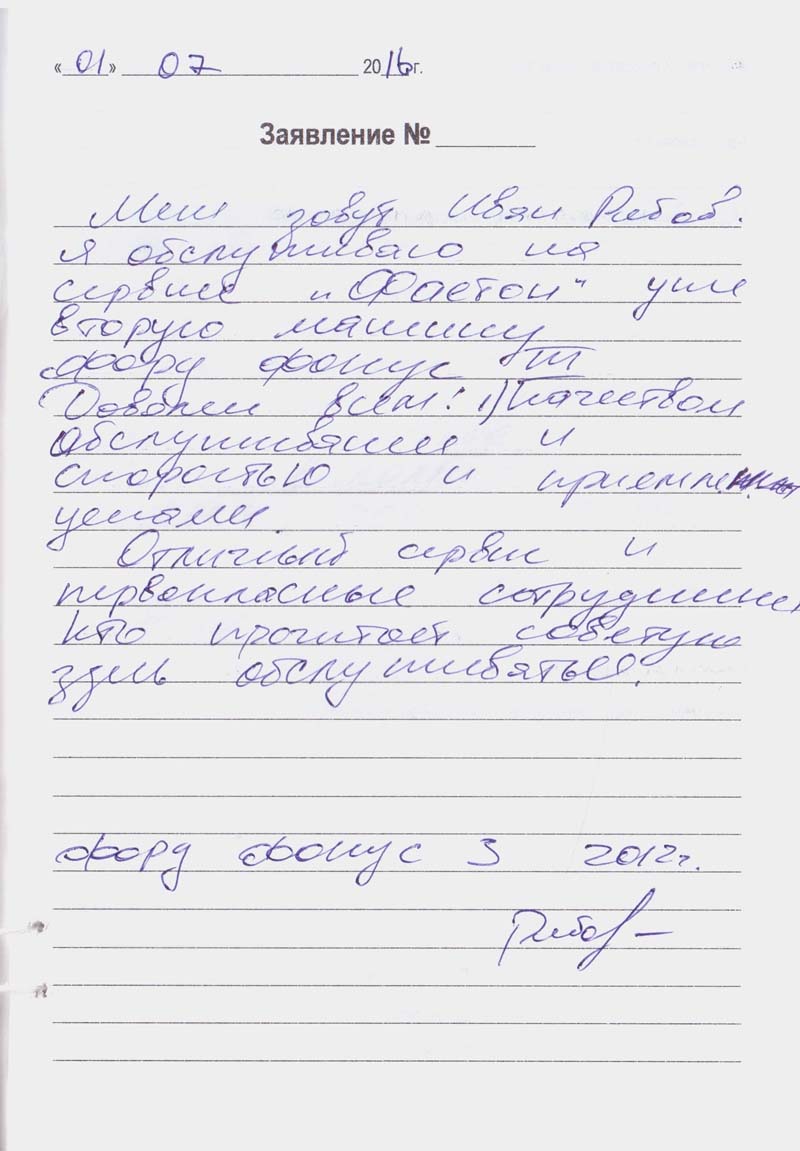 «01» 07 2016г.
Заявление №
Меня зовут Иван Рябов.
Я обслуживаю на
сервисе "Фаетон" уже
вторую машину
форд фокус III
Доволен всем! 1) качеством
обслуживания и
скоростью и приемлем
ценами.
Отличный сервис и
первокласные сотрудники
кто прочитает советую
здесь обслуживаться.
форд фокус 3 2012г.
Рябов